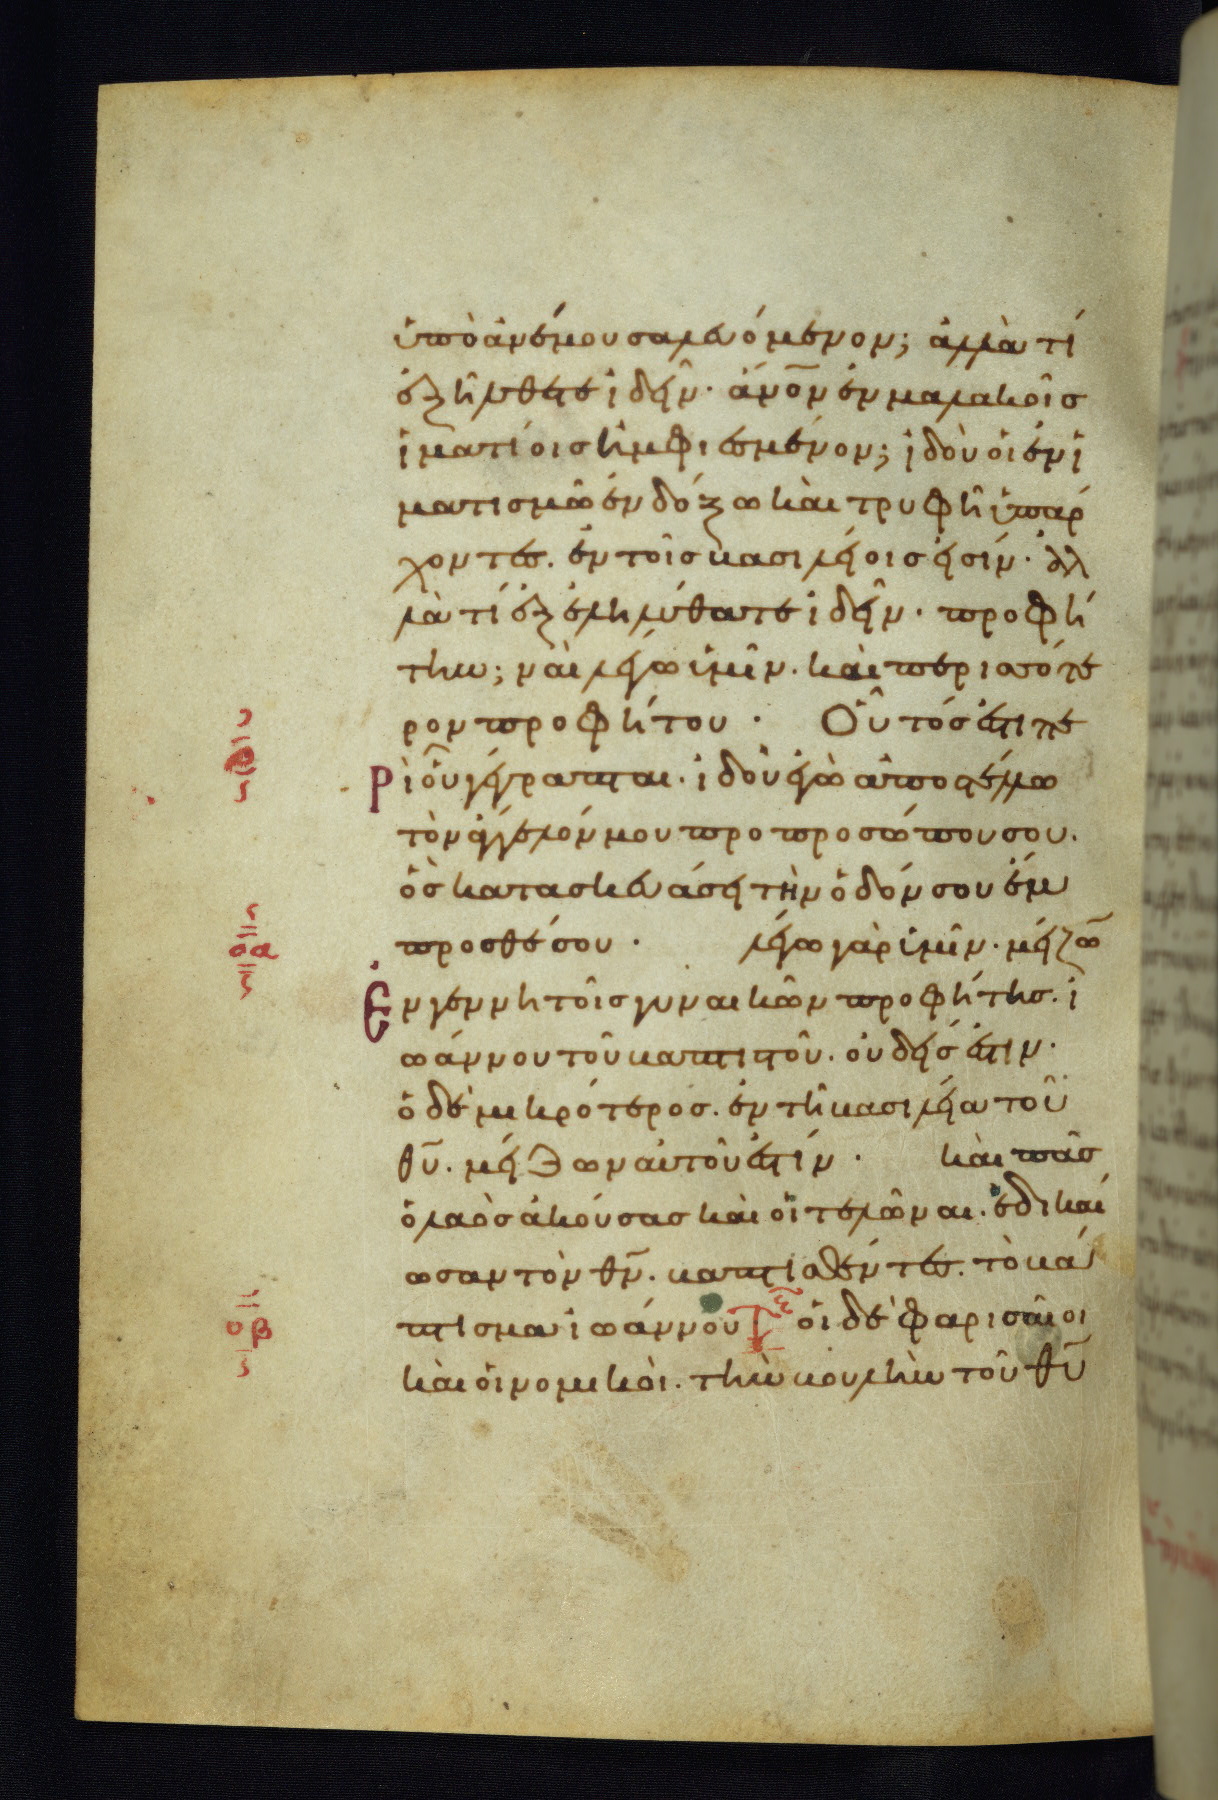 ὑπὸ ἀνέμου σαλευόμενον; ἀλλὰ τί
ἐξήλθετε ἰδεῖν· ἄνο̅ν ἐν μαλακοῖσ
ἱματίοισ ἠμφιεσμένον; ἰδοὺ οἱ ἐν ἱ
ματισμῶ ἐνδόξω καὶ τρυφῆ ὑπάρ
χοντεσ. ἐν τοῖσ βασιλείοισ εἰσίν· ἀλ
λὰ τί ἐξεληλύθατε ἰδεῖν· προφή
την; ναὶ λέγω ὑμῖν. καὶ περισσότε
ρον προφήτου · Οὗτόσ ἐστι πε
ρὶ οὗ γέγραπται· ἰδοὺ ἐγὼ ἀποστέλλω
τὸν ἄγγελόν μου προ προσώπου σου.
ὃσ κατασκευάσει τὴν ὁδόν σου ἔμ
προσθέ σου · λέγω γὰρ ὑμῖν. μείζω̅
ἐν γεννητοῖσ γυναικῶν προφήτησ. ἰ
ωάννου τοῦ βαπτιστοῦ. οὐδείσ ἐστιν·
ὁ δὲ μικρότεροσ. ἐν τῆ βασιλεία τοῦ
θυ̅. μείζων αὐτοῦ ἐστίν · καὶ πᾶσ
ὁ λαὸσ ἀκούσασ καὶ οἱ τελῶναι. ἐδικαί
ωσαν τὸν θν̅. βαπτισθέντεσ. τὸ βά
πτισμα ἰωάννου οἱ δὲ φαρισαῖοι
καὶ οἱ νομικοὶ. τὴν βουλὴν τοῦ θυ̅
οα
οβ